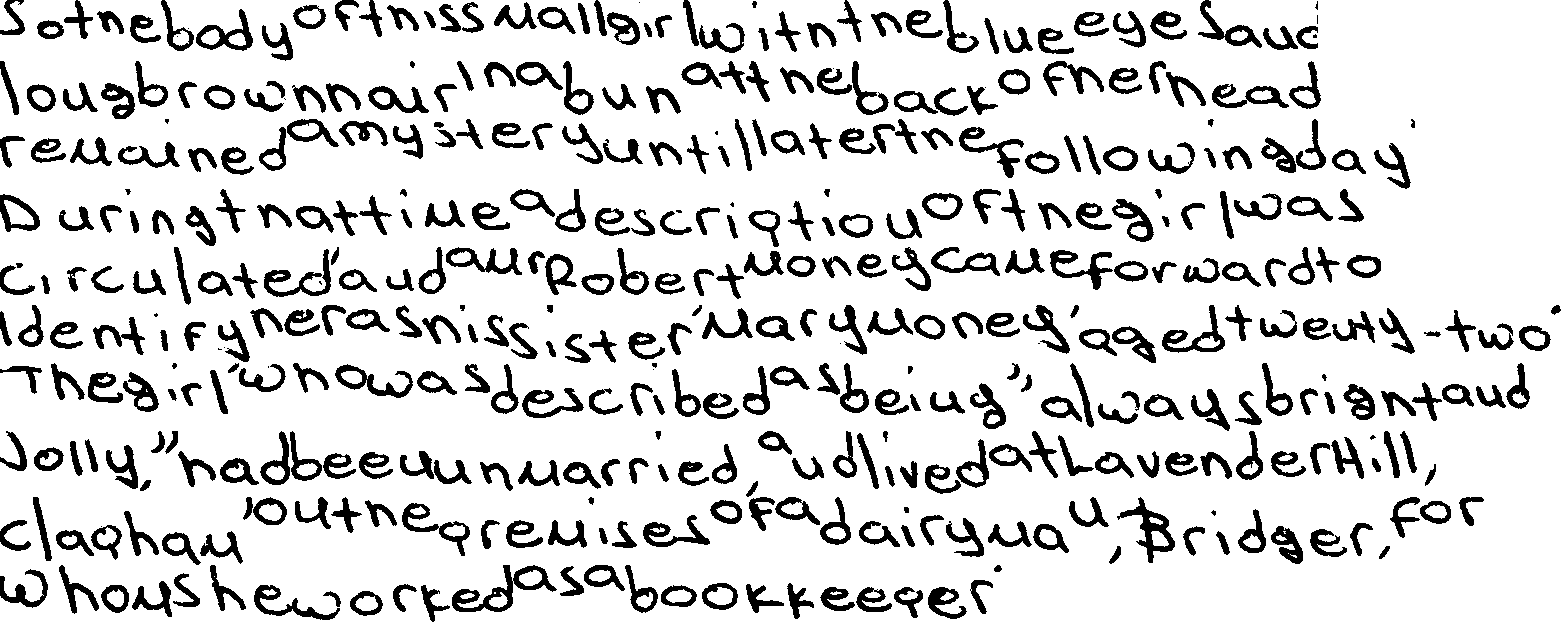 So the body of this small girl with the blue eyes and
long brown hair in a bun at the back of her head
remained a mystery until later the following day.
During that time a description of the girl was
circulated, and a Mr Robert Money came forward to
identify her as his sister, Mary Money, aged twenty-two.
The girl, who was described as being "always bright and
jolly," had been unmarried, and lived at Lavender Hill,
Clapham, on the premises of a dairyman, Bridger, for
whom she worked as a bookkeeper.